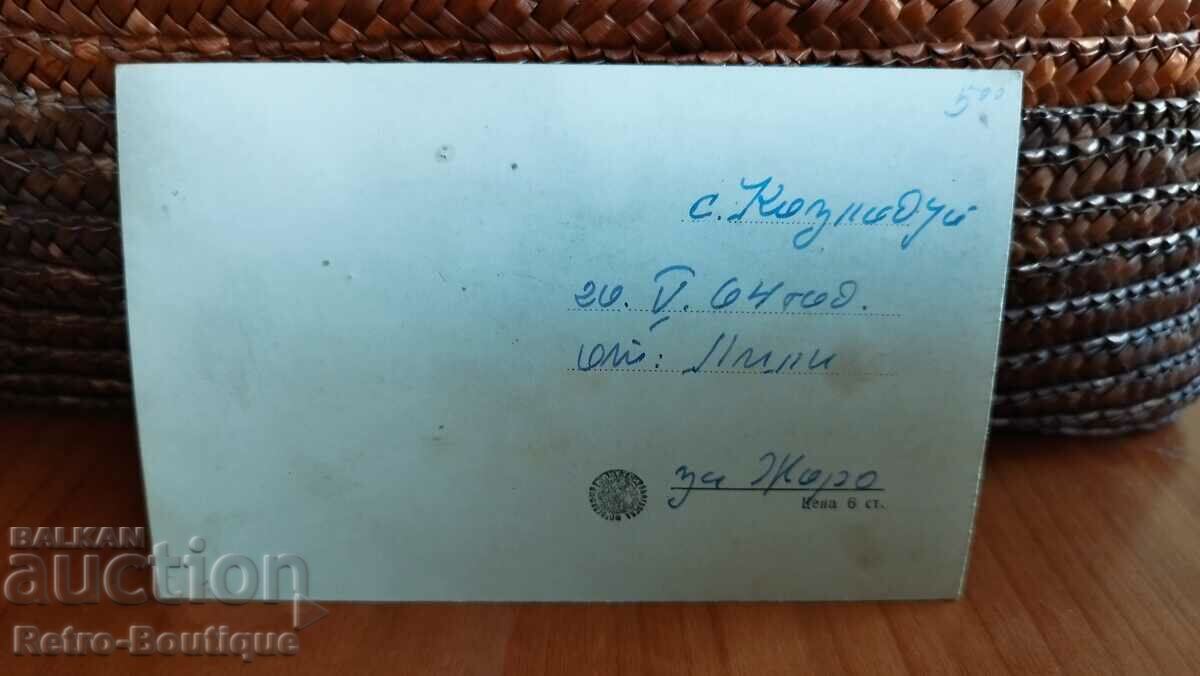 5⁰⁰
с. Козлодуй
26. V. 64 год.
от. Пипи
за Жоро
Цена 6 ст.
BALKAN
auction
Retro-Boutique